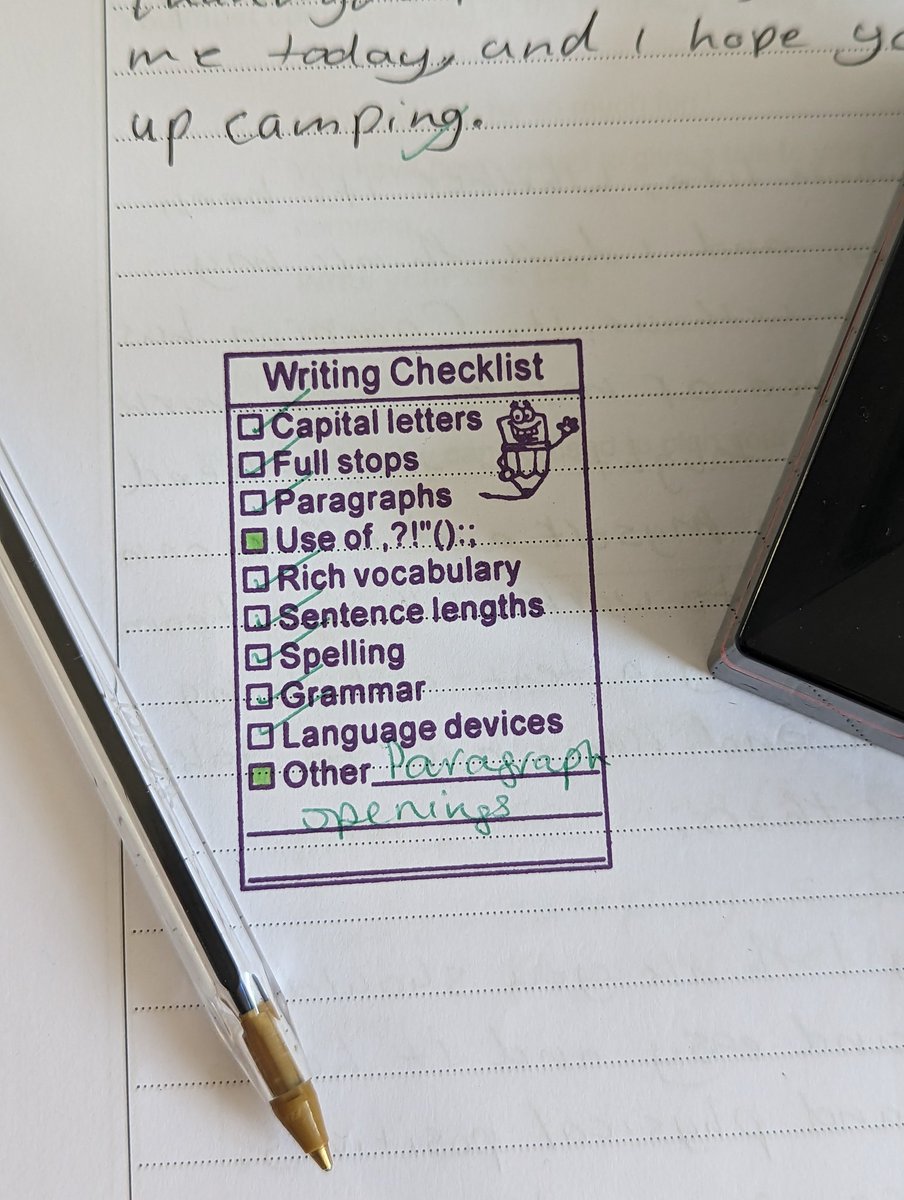 me today, and I hope
up camping.
Writing Checklist
Capital letters
Full stops
Paragraphs
Use of ,?!"():;
Rich vocabulary
Sentence lengths
Spelling
Grammar
Language devices
Other Paragraph
openings